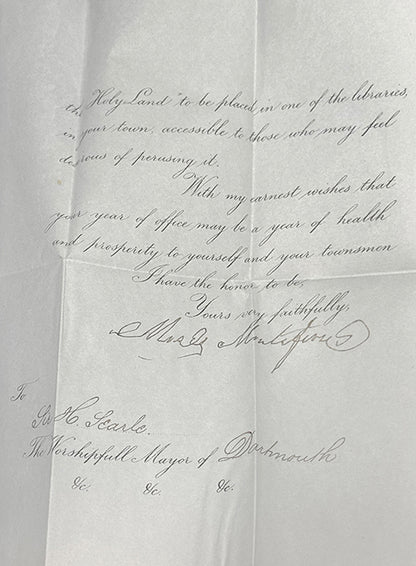 the "Holy Land" to be placed in one of the libraries,
in your town, accessible to those who may feel
desirous of perusing it.
With my earnest wishes that
your year of office may be a year of health
and prosperity to yourself and your townsmen
I have the honor to be,
Yours very faithfully,
Moses Montefiore
To
Sir H. Searle.
The Worshipfull Mayor of Dartmouth
&c. &c. &c.